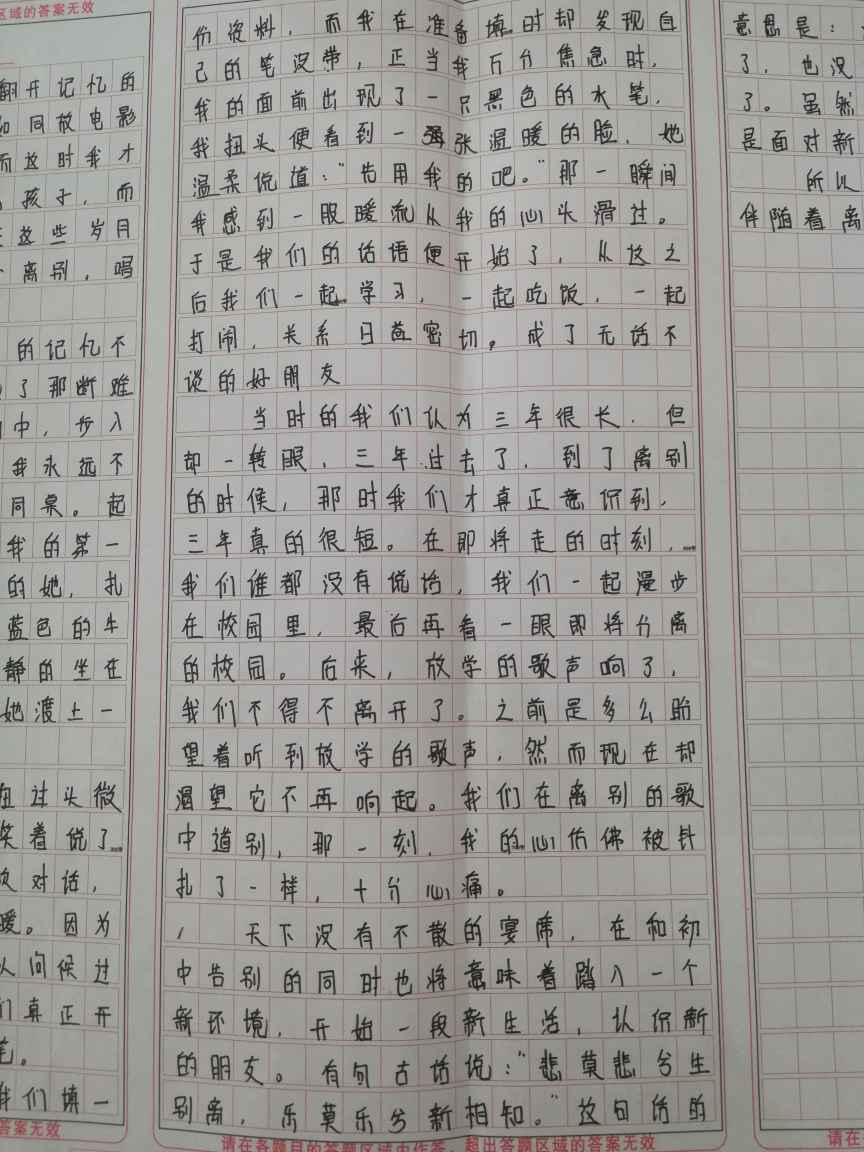 区域的答案无效
翻开记忆的
如同放电影
而这时我才
孩子，而
这些岁月
离别，唱
的记忆不
了那断难
中，步入
我永远不
同桌。起
我的第一
的她，扎
蓝色的牛
静的坐在
她渡上一
扭过头微
笑着说了
次对话，
暖。因为
人问候过
们真正开
笔。
我们填一
答案无效
份资料，而我在准备填时却发现自
己的笔没带，正当我万分焦急时，
我的面前出现了一只黑色的水笔，
我扭头便看到一张温暖的脸，她
温柔说道：“先用我的吧。”那一瞬间
我感到一股暖流从我的心头滑过。
于是我们的话语便开始了，从这之
后我们一起学习，一起吃饭，一起
打闹，关系日益密切。成了无话不
谈的好朋友
当时的我们认为三年很长．但
却一转眼，三年过去了，到了离别
的时候，那时我们才真正意识到，
三年真的很短。在即将走的时刻，
我们谁都没有说话，我们一起漫步
在校园里，最后再看一眼即将分离
的校园。后来，放学的歌声响了，
我们不得不离开了。之前是多么盼
望着听到放学的歌声，然而现在却
渴望它不再响起。我们在离别的歌
中道别，那一刻，我的心仿佛被针
扎了一样，十分心痛。
天下没有不散的宴席，在和初
中告别的同时也将意味着踏入一个
新环境，开始一段新生活，认识新
的朋友。有句古话说：“悲莫悲兮生
别离，乐莫乐兮新相知。”这句话的
请在各题目的答题区域内作答，超出答题区域的答案无效
意思是：
了，也没
了。虽然
是面对新
所以
伴随着离
请在